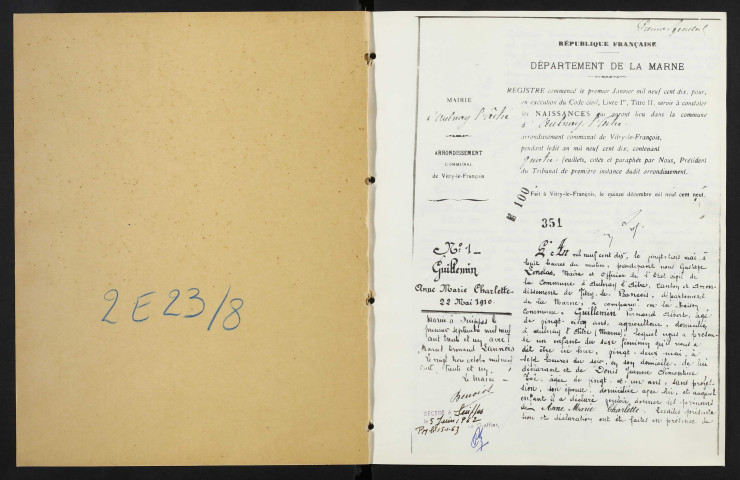 2 E 23/8
RÉPUBLIQUE FRANÇAISE
DÉPARTEMENT DE LA MARNE
MAIRIE
d'Aulnay l'Aître
ARRONDISSEMENT
COMMUNAL
de Vitry-le-François
REGISTRE commencé le premier Janvier mil neuf cent dix, pour,
en exécution du Code civil, Livre Ier, Titre II, servir à constater
les NAISSANCES qui auront lieu dans la commune
d'Aulnay l'Aître
arrondissement communal de Vitry-le-François,
pendant ledit an mil neuf cent dix, contenant
feuillets, cotés et paraphés par Nous, Président
du Tribunal de première instance dudit arrondissement.
Fait à Vitry-le-François, le quinze décembre mil neuf cent neuf.
E 100
351
No 1
Guillemin
Anne Marie Charlotte
22 Mai 1910
Marié à Suippes le
premier septembre mil neuf
cent trente et un avec
Marcel
cent trente et un
Le Maire
DÉCÉDÉ à Suippes
le 5 Juin 1962
L'An mil neuf cent dix, le vingt-trois mai à
huit heures du matin, pardevant nous Gustave
Maire et Officier de l'Etat civil de
la commune d'Aulnay l'Aître, Canton et Arron-
dissement de Vitry-le-François, département
de la Marne, a comparu en la Maison
Commune, Guillemin Fernand Albert, âgé
de vingt-cinq ans, agriculteur, domicilié
à Aulnay l'Aître (Marne), lequel nous a présen-
té un enfant du sexe féminin qu'il nous a
dit être né hier, vingt-deux mai, à
sept heures du soir, en son domicile, de lui
déclarant et de Denis Jeanne Clémentine
âgée de vingt et un ans, sans profes-
sion, son épouse, domiciliée avec lui, et auquel
enfant il a déclaré vouloir donner les prénoms
de Anne Marie Charlotte. Lesdites présenta-
tion et déclaration ont été faites en présence de